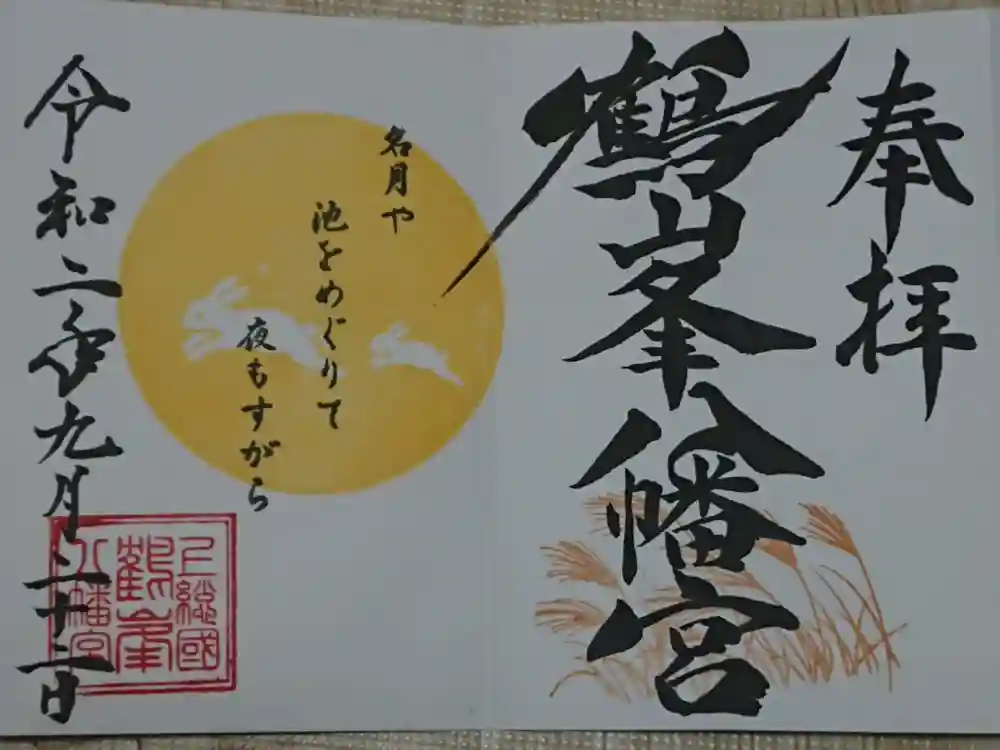 奉拝
鶴峯八幡宮
名月や
池をめぐりて
夜もすがら
令和二年九月二十二日
上総國
鶴峯
八幡宮